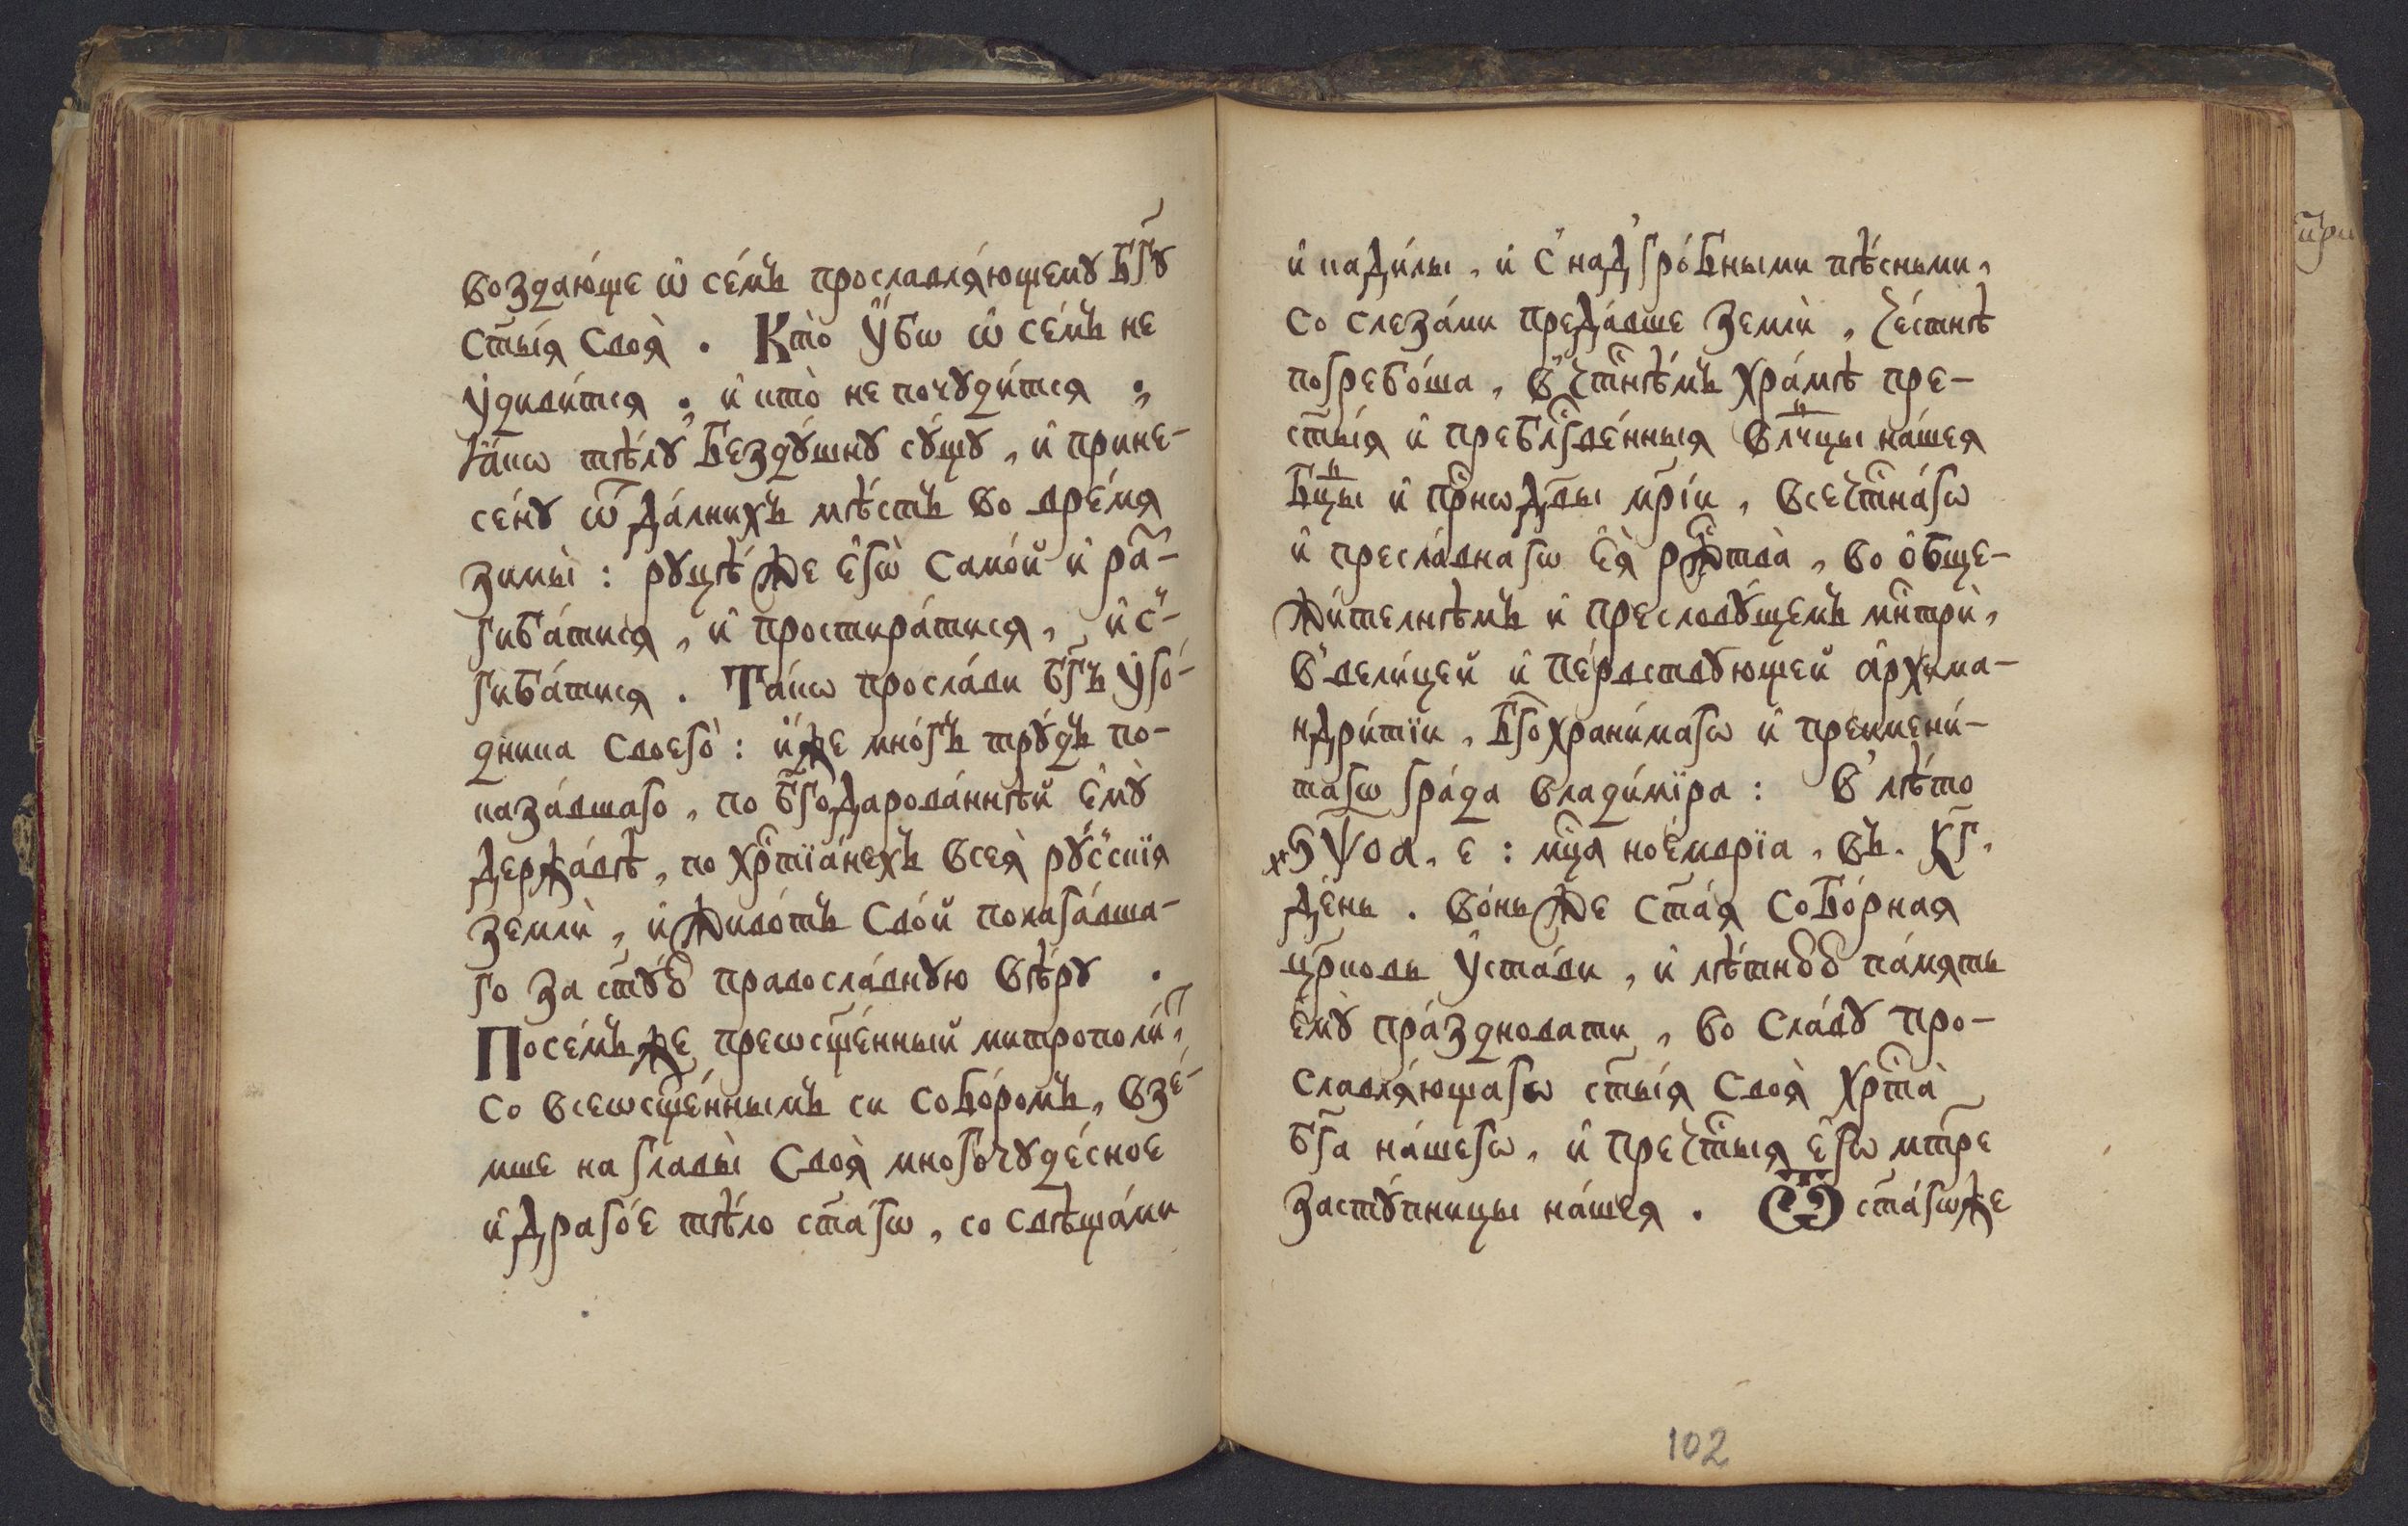 воздаю́ще ѡ҆ се́мъ прославлѧ́ющемꙋ Бг҃ꙋ
ст҃ы́ѧ своѧ̀ . Кто̀ ᲂу҆́бѡ ѡ҆ се́мъ не
ᲂу҆диви́тсѧ . и҆ кто̀ не почꙋди́тсѧ ,
ꙗ҆́кѡ тѣ́лꙋ бездꙋ́шнꙋ сꙋ́щꙋ , и҆ прине-
се́нꙋ ѿ да́лнихъ мѣ́стъ во вре́мѧ
зимы̀ : рꙋцѣ́ же є҆гѡ̀ само́й и҆ ра̾-
гиба́тисѧ , и҆ простира́тисѧ , и҆ с̾-
гиба́тисѧ . Та́кѡ просла́ви бг҃ъ ᲂу҆го́-
дника своего̀ : и҆́же мно́гъ трꙋ́дъ по-
каза́вшаго , по бг҃ода́рова́ннѣй є҆мꙋ̀
держа́вѣ , по хрⷭ҇тїа́нехъ всеѧ̀ рꙋ́сскїѧ
землѝ , и҆ живо́тъ сво́й полага́вша-
го за ст҃ꙋ́ю правосла́внꙋю вѣ́рꙋ .
Посе́мъ же преѡсщ҃е́нный митрополи́т̾
со всеѡсщ҃е́ннымъ си собо́ромъ , взе́-
мше на главы̀ своѧ̀ многочꙋде́сное
и҆ драго́е тѣ́ло ст҃а́гѡ , со свѣща́ми
и҆ кади́лы , и҆ с̾ над̾гро́бными пѣ́сньми ,
со слеза́ми преда́вше землѝ , че́стнѣ
погребо́ша , в̾ чⷭ҇тнѣ́мъ хра́мѣ пре-
ст҃ы́ѧ и҆ пребл҃гве́нныѧ влⷣчцы на́шеѧ
Бцⷣы и҆ прⷭ҇нѡдв҃ы мр҃і́и , всечⷭ҇тна́гѡ
и҆ пресла́внагѡ є҆ѧ̀ ржⷭ҇тва̀ , во ѻ҆́бще-
жи́телнѣмъ и҆ пресловꙋ́щемъ мⷭ҇тр̀и ,
в̾ вели́цей и҆ пе́рвствꙋющей а҆рхима-
ндри́тїи , Бг҃охрани́магѡ и҆ преимени́-
тагѡ гра́да влади́мїра : в̾ лѣ́то
҂ѕѱоа , є : мцⷭ҇а ное́мврїа , въ . кг҃ .
де́нь . во́ньже ст҃а́ѧ собо́рнаѧ
цр҃ковь ᲂу҆ста́ви , и҆ лѣ́тнюю па́мѧть
є҆мꙋ̀ пра́здновати , во сла́вꙋ про-
славлѧ́ющагѡ ст҃ы́ѧ своѧ̀ хрⷭ҇та̀
бг҃а на́шегѡ , и҆ пречⷭ҇тыѧ є҆гѡ̀ мт҃ре
застꙋ́пницы на́шеѧ . Ѿ ст҃а́гѡже
102